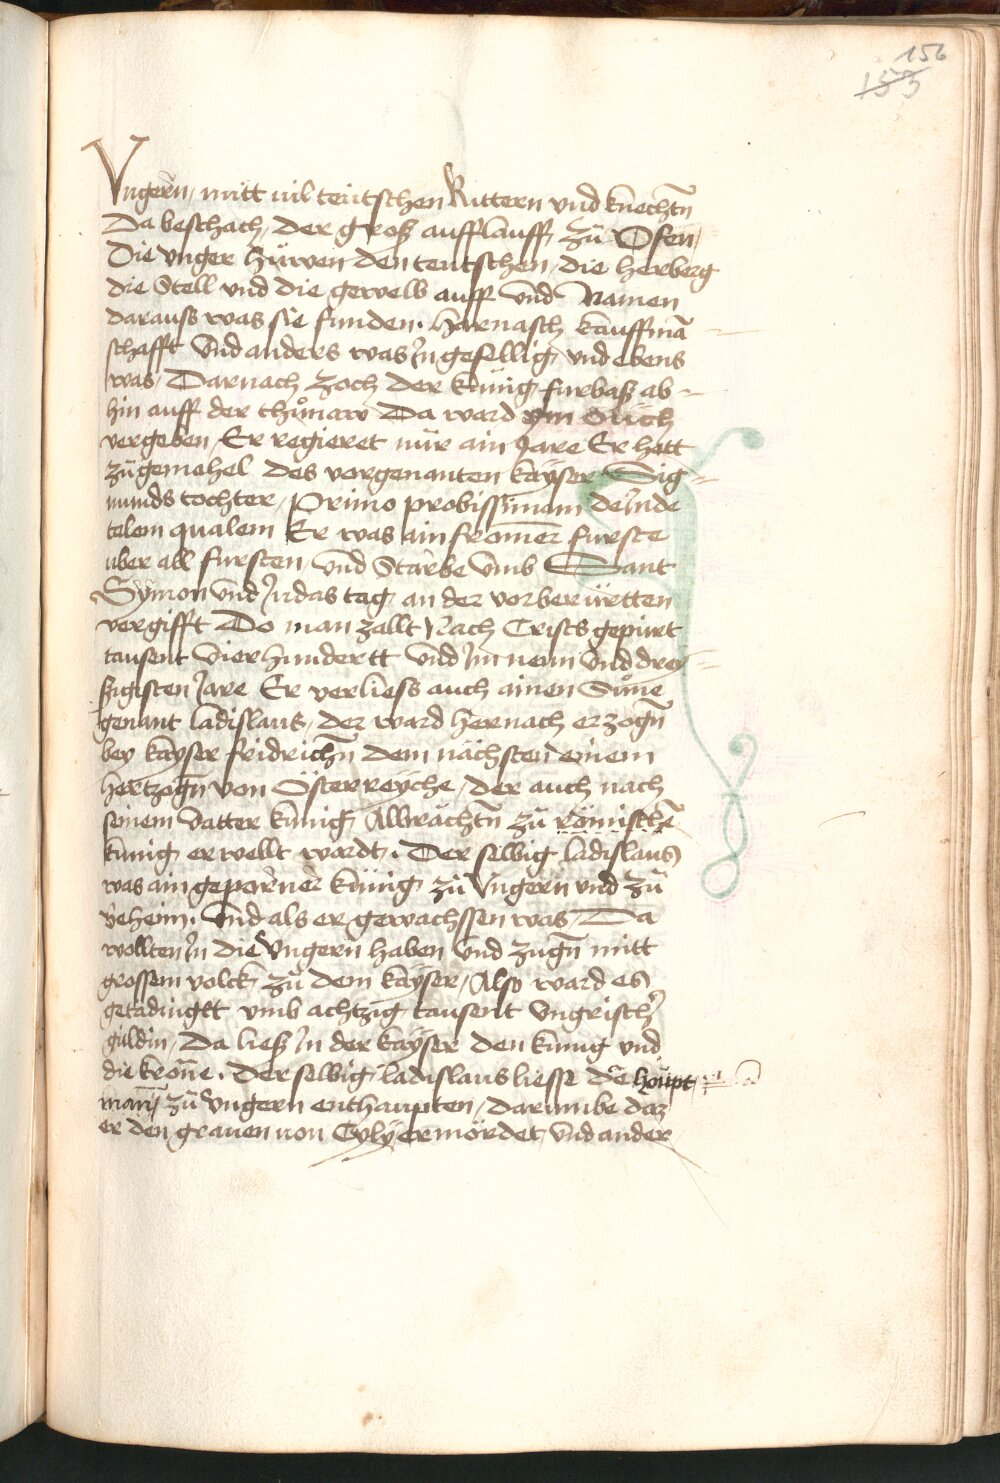 156
153
Vngern / mitt uil teutschen Rittern vnd knechtn̄
Da beschach / der groß aufflauff zů Ofen /
Die vnger hüwen den teutschen / die herberg
die Stell vnd die gewelb auff vnd Namen
darauss was sie funden. Harnasch kauffmā
schafft vnd anders was Jn gefellig vnd ebens
was / Darnach zoch der künig furbaß ab -
hin auff der thůnaw Da ward ym Süch
vergeben Er regieret nür ain Jare Er hett
zů gemehel des vorgenanten kaÿser Sig=
munds tochter / Primo probissimam deinde
telem qualem Er was ain fromer furste
uber all fursten / vnd Starbe vmb Sant
Sÿmon vnd Judas tag an der vorberürtten
vergifft Do man zallt Nach Crists gepürt
tausent vierhundertt vnd Jm neun vnd drey=
ßigisten Jare Er verliess auch ainen Sůne
genant ladislaus / der ward hernach erzogn̄
bey kayser fridrichn̄ dem nächsten einem
hertzogn̄ von Österreÿche / der auch nach
seinem vatter künig Albrächtn̄ zů römischē
künig erwellt wardt. Der selbig ladislaus
was ain geporner künig zů Vngern vnd zů
Beheim. Vnd als er gewachssen was / Da
wollten Jn die Vngern haben vnd zugn̄ mitt
grossem volck zů dem kaÿser / Also ward es
getädingkt vmb achtzig tausent vngrisch
guldin / Da ließ Jn der kaÿser den künig vnd
die krone. Derselbig ladislaus liesse dē houpt
man zů Vngern enthaupten / darumbe daz
er den grauen uon Cÿlÿ ermördet vnd ander